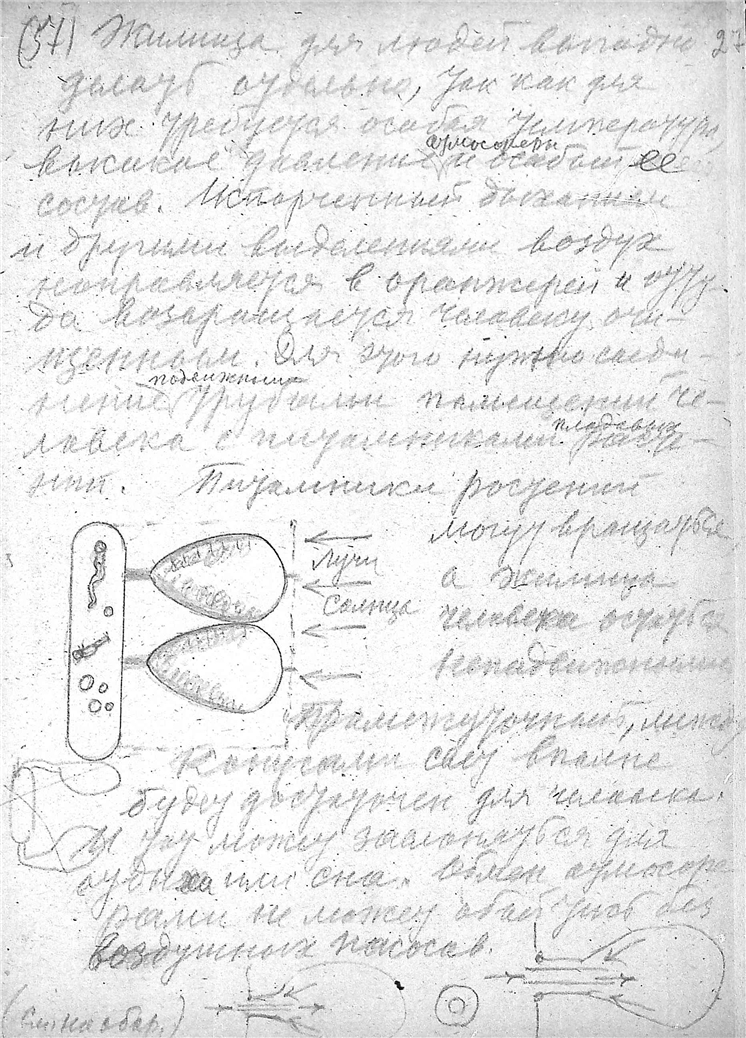 (37) Жилища для людей выгодно 27
делать отдельно, так как для
них требуется особая температура,
высокое давление атмосферы и особый ее
состав. Испорченный дыханием
и другими выделениями воздух
направляется в оранжереи и отту-
да возвращается человеку очи-
щенным. Для этого нужно соеди-
нение подвижными трубами помещений че-
ловека с питомниками плодовых расте-
ний. Питомники растений
могут вращаться,
а жилища
человека остаться
неподвижными
Лучи
Солнца
Промежуточный, между
конусами свет вполне
будет достаточен для человека.
И тот может заслоняться для
отдыха или сна. Обмен атмосфе-
рами не может обойтись без
воздушных насосов.
(См. на обор.)